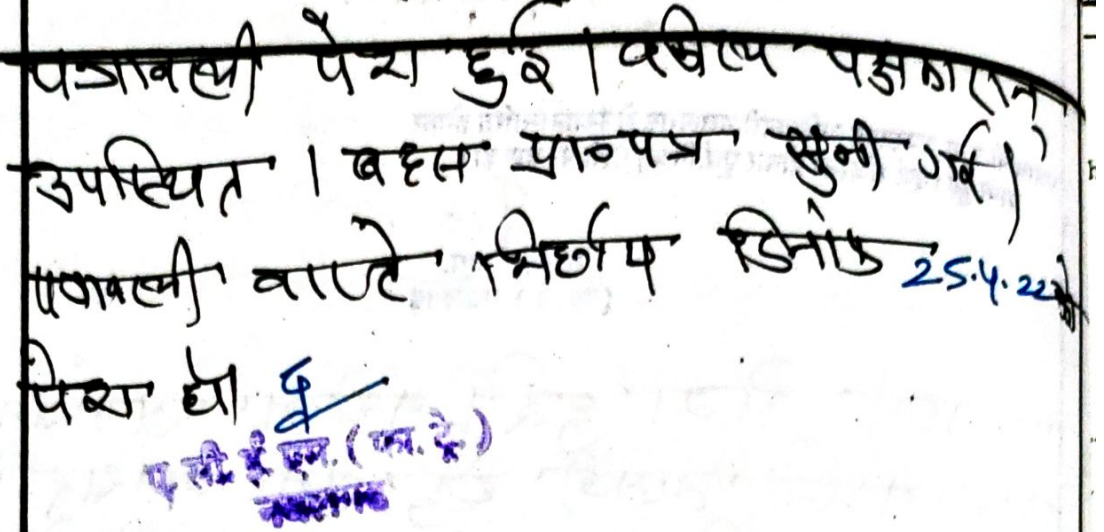 पत्रावली पेश हुई। वकील पक्षकारान
उपस्थित । बहस प्रा०पत्र सुनी गई।
पत्रावली वास्ते निर्णय दिनांक 25.4.22 को
पेश हो
(फा. ट्रे.)